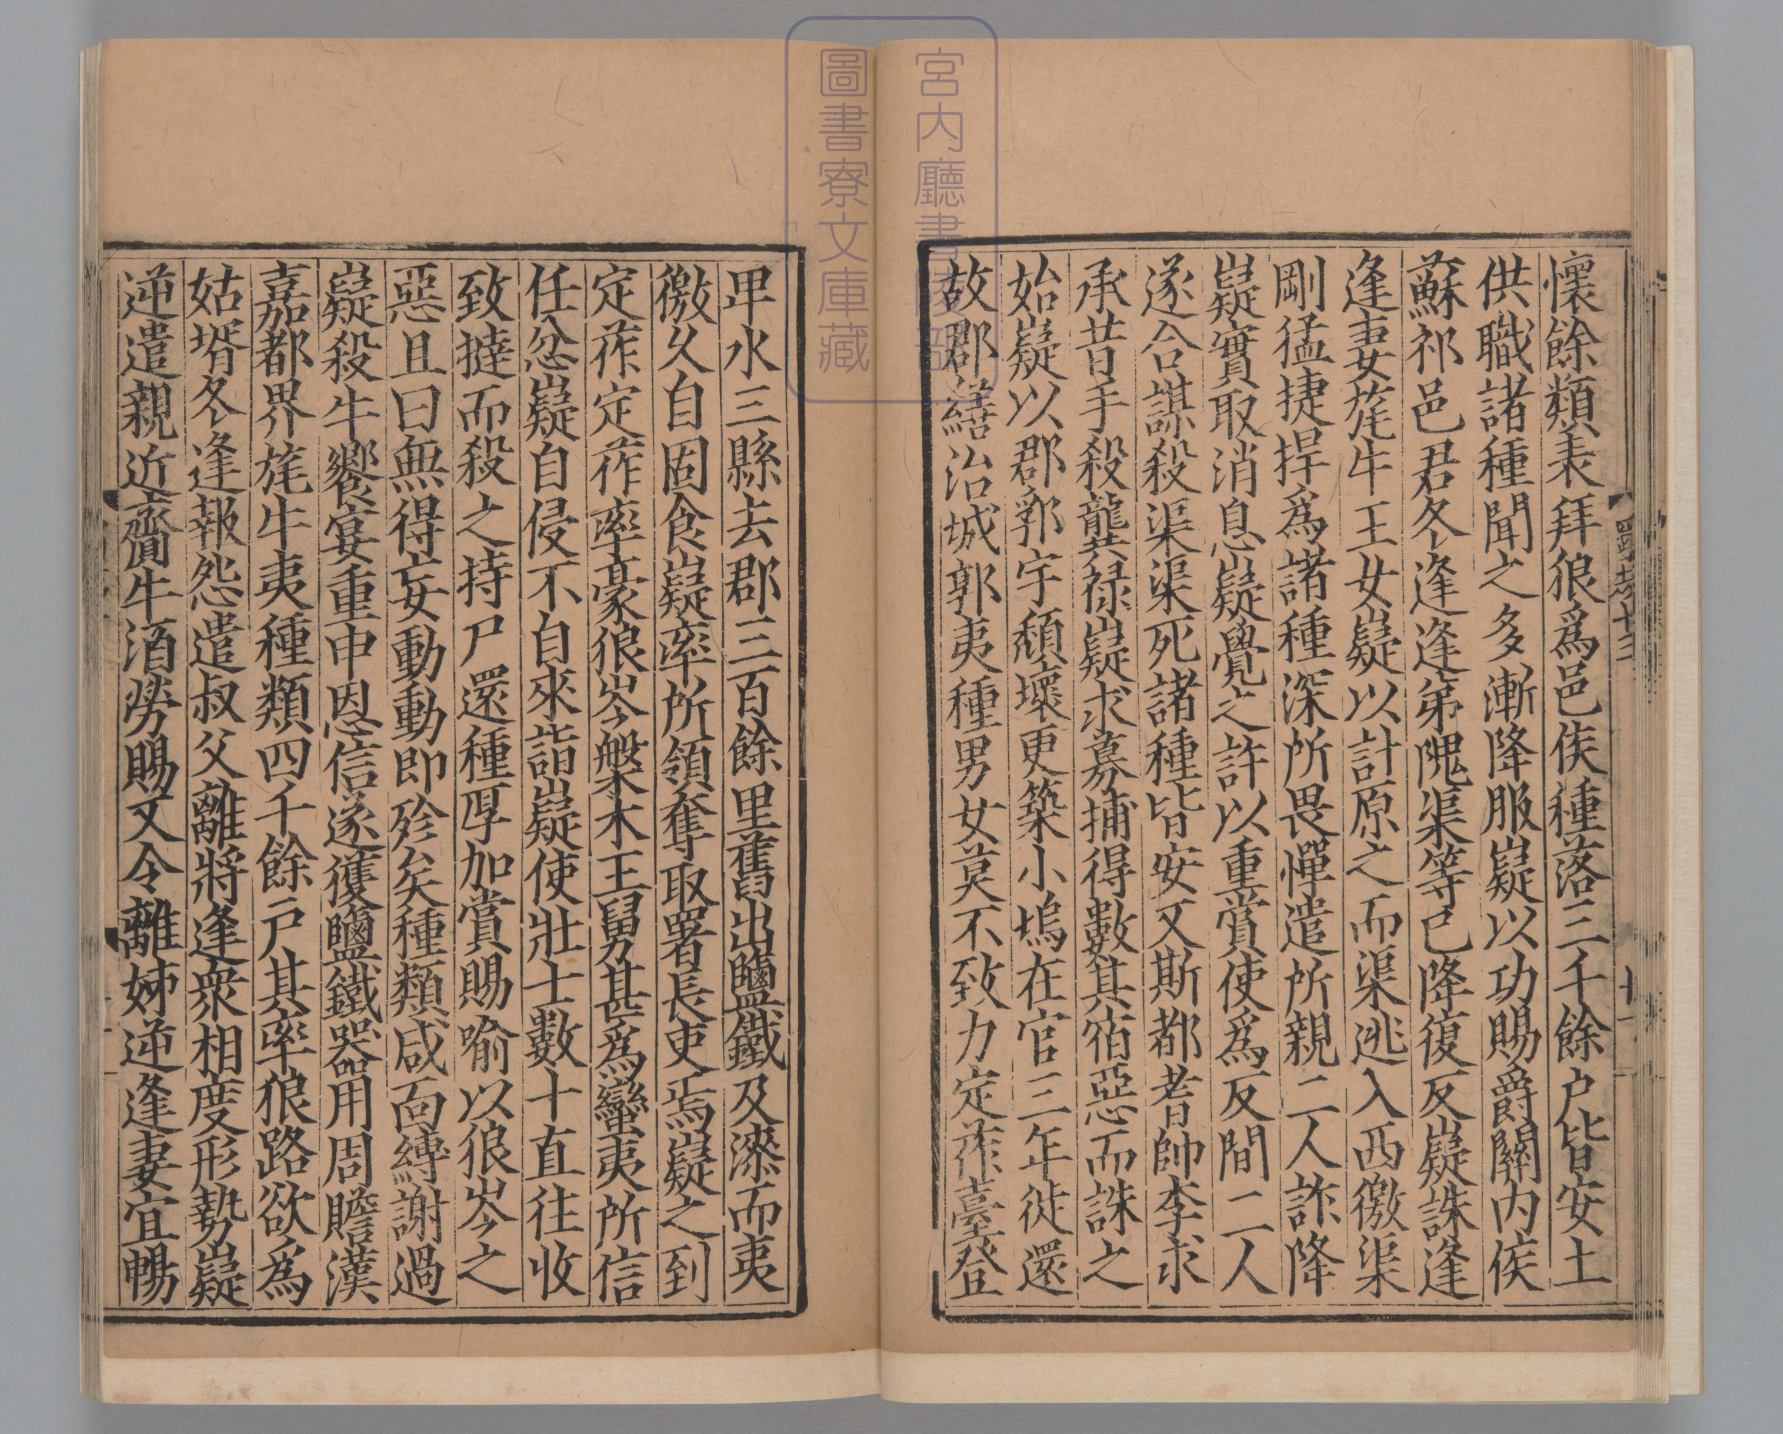 懷餘類表拜狼爲邑侯種落三千餘户皆安土
供職諸種聞之多漸降服嶷以功賜爵關内侯
蘇祁邑君冬逢逢弟隗渠等已降復反嶷誅逢
逢妻旄牛王女嶷以計原之而渠逃入西徼渠
剛猛捷捍爲諸種深所畏憚遣所親二人詐降
嶷實取消息嶷覺之許以重賞使爲反間二人
遂合謀殺渠渠死諸種皆安又斯都耆帥李求
承昔手殺龔禄嶷求募捕得數其宿惡而誅之
始嶷以郡郭宇頽壞更築小塢在官三年徙還
故郡繕治城郭夷種男女莫不致力定莋臺登
卑水三縣去郡三百餘里舊出鹽鐵及漆而夷
徼久自固食嶷率所領奪取署長吏焉嶷之到
定莋定莋率豪狼岑槃木王舅甚爲蠻夷所信
任忿嶷自侵不自來詣嶷使壯士數十直往收
致撻而殺之持尸還種厚加賞賜喻以狼岑之
惡且曰無得妄動動即殄矣種類咸面縛謝過
嶷殺牛饗宴重申恩信遂獲鹽鐵器用周贍漢
嘉都界旄牛夷種類四千餘戸其率狼路欲爲
姑壻冬逢報怨遣叔父離將逢衆相度形勢嶷
逆遣親近齎牛酒勞賜又令離姊逆逢妻宜暢
宮内廳書陵部
圖書寮文庫藏